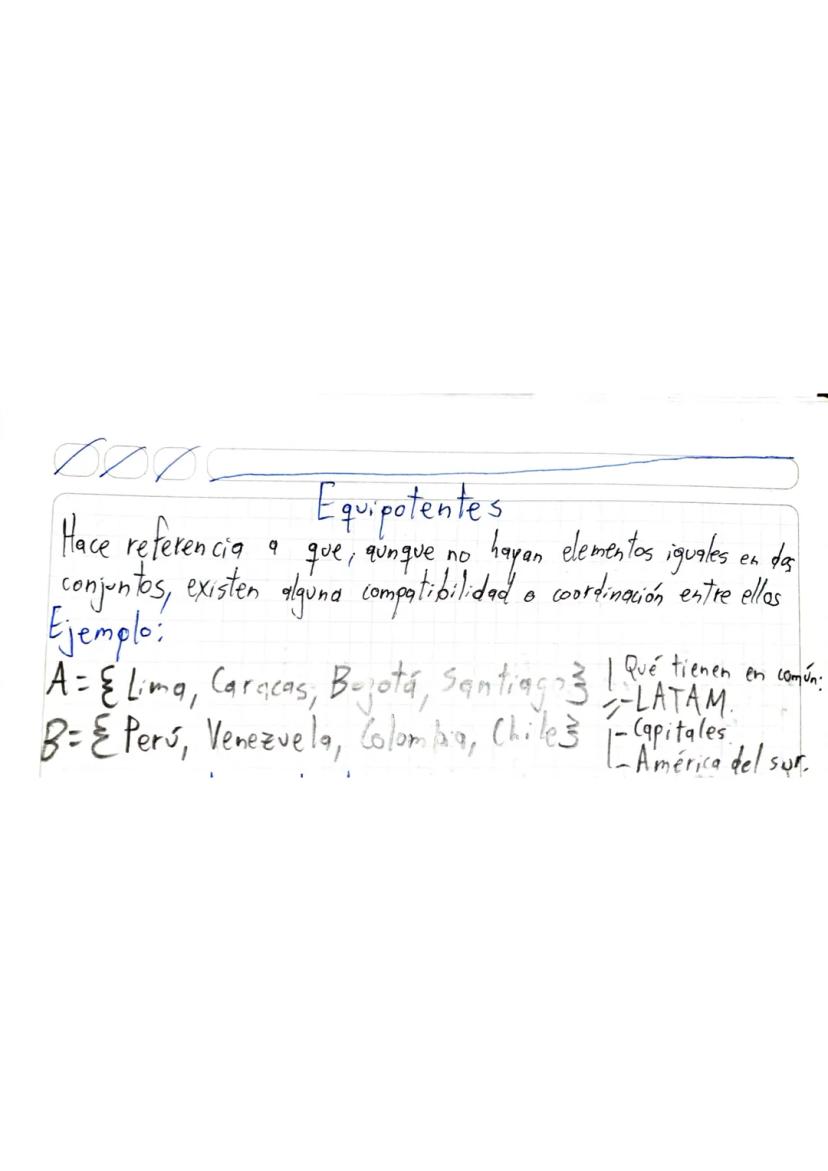 Equipotentes
Hace referencia a que, aunque no hayan elementos iguales en dos
conjuntos, existen alguna compatibilidad o coordinación entre ellos
Ejemplo:
A = { Lima, Caracas, Bogotá, Santiago}
B = { Perú, Venezuela, Colombia, Chile}
Qué tienen en común:
- LATAM.
- Capitales
- América del sur.